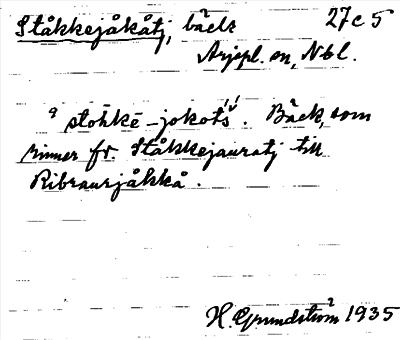 Ståkkejåkåtj, bäck 27c5
Arjepl. sn, Nbl.
stohkē-jokots'. Bäck, som
rinner fr. Ståkkejauratj till
Ribraurjåkkå.
H. Grundström 1935